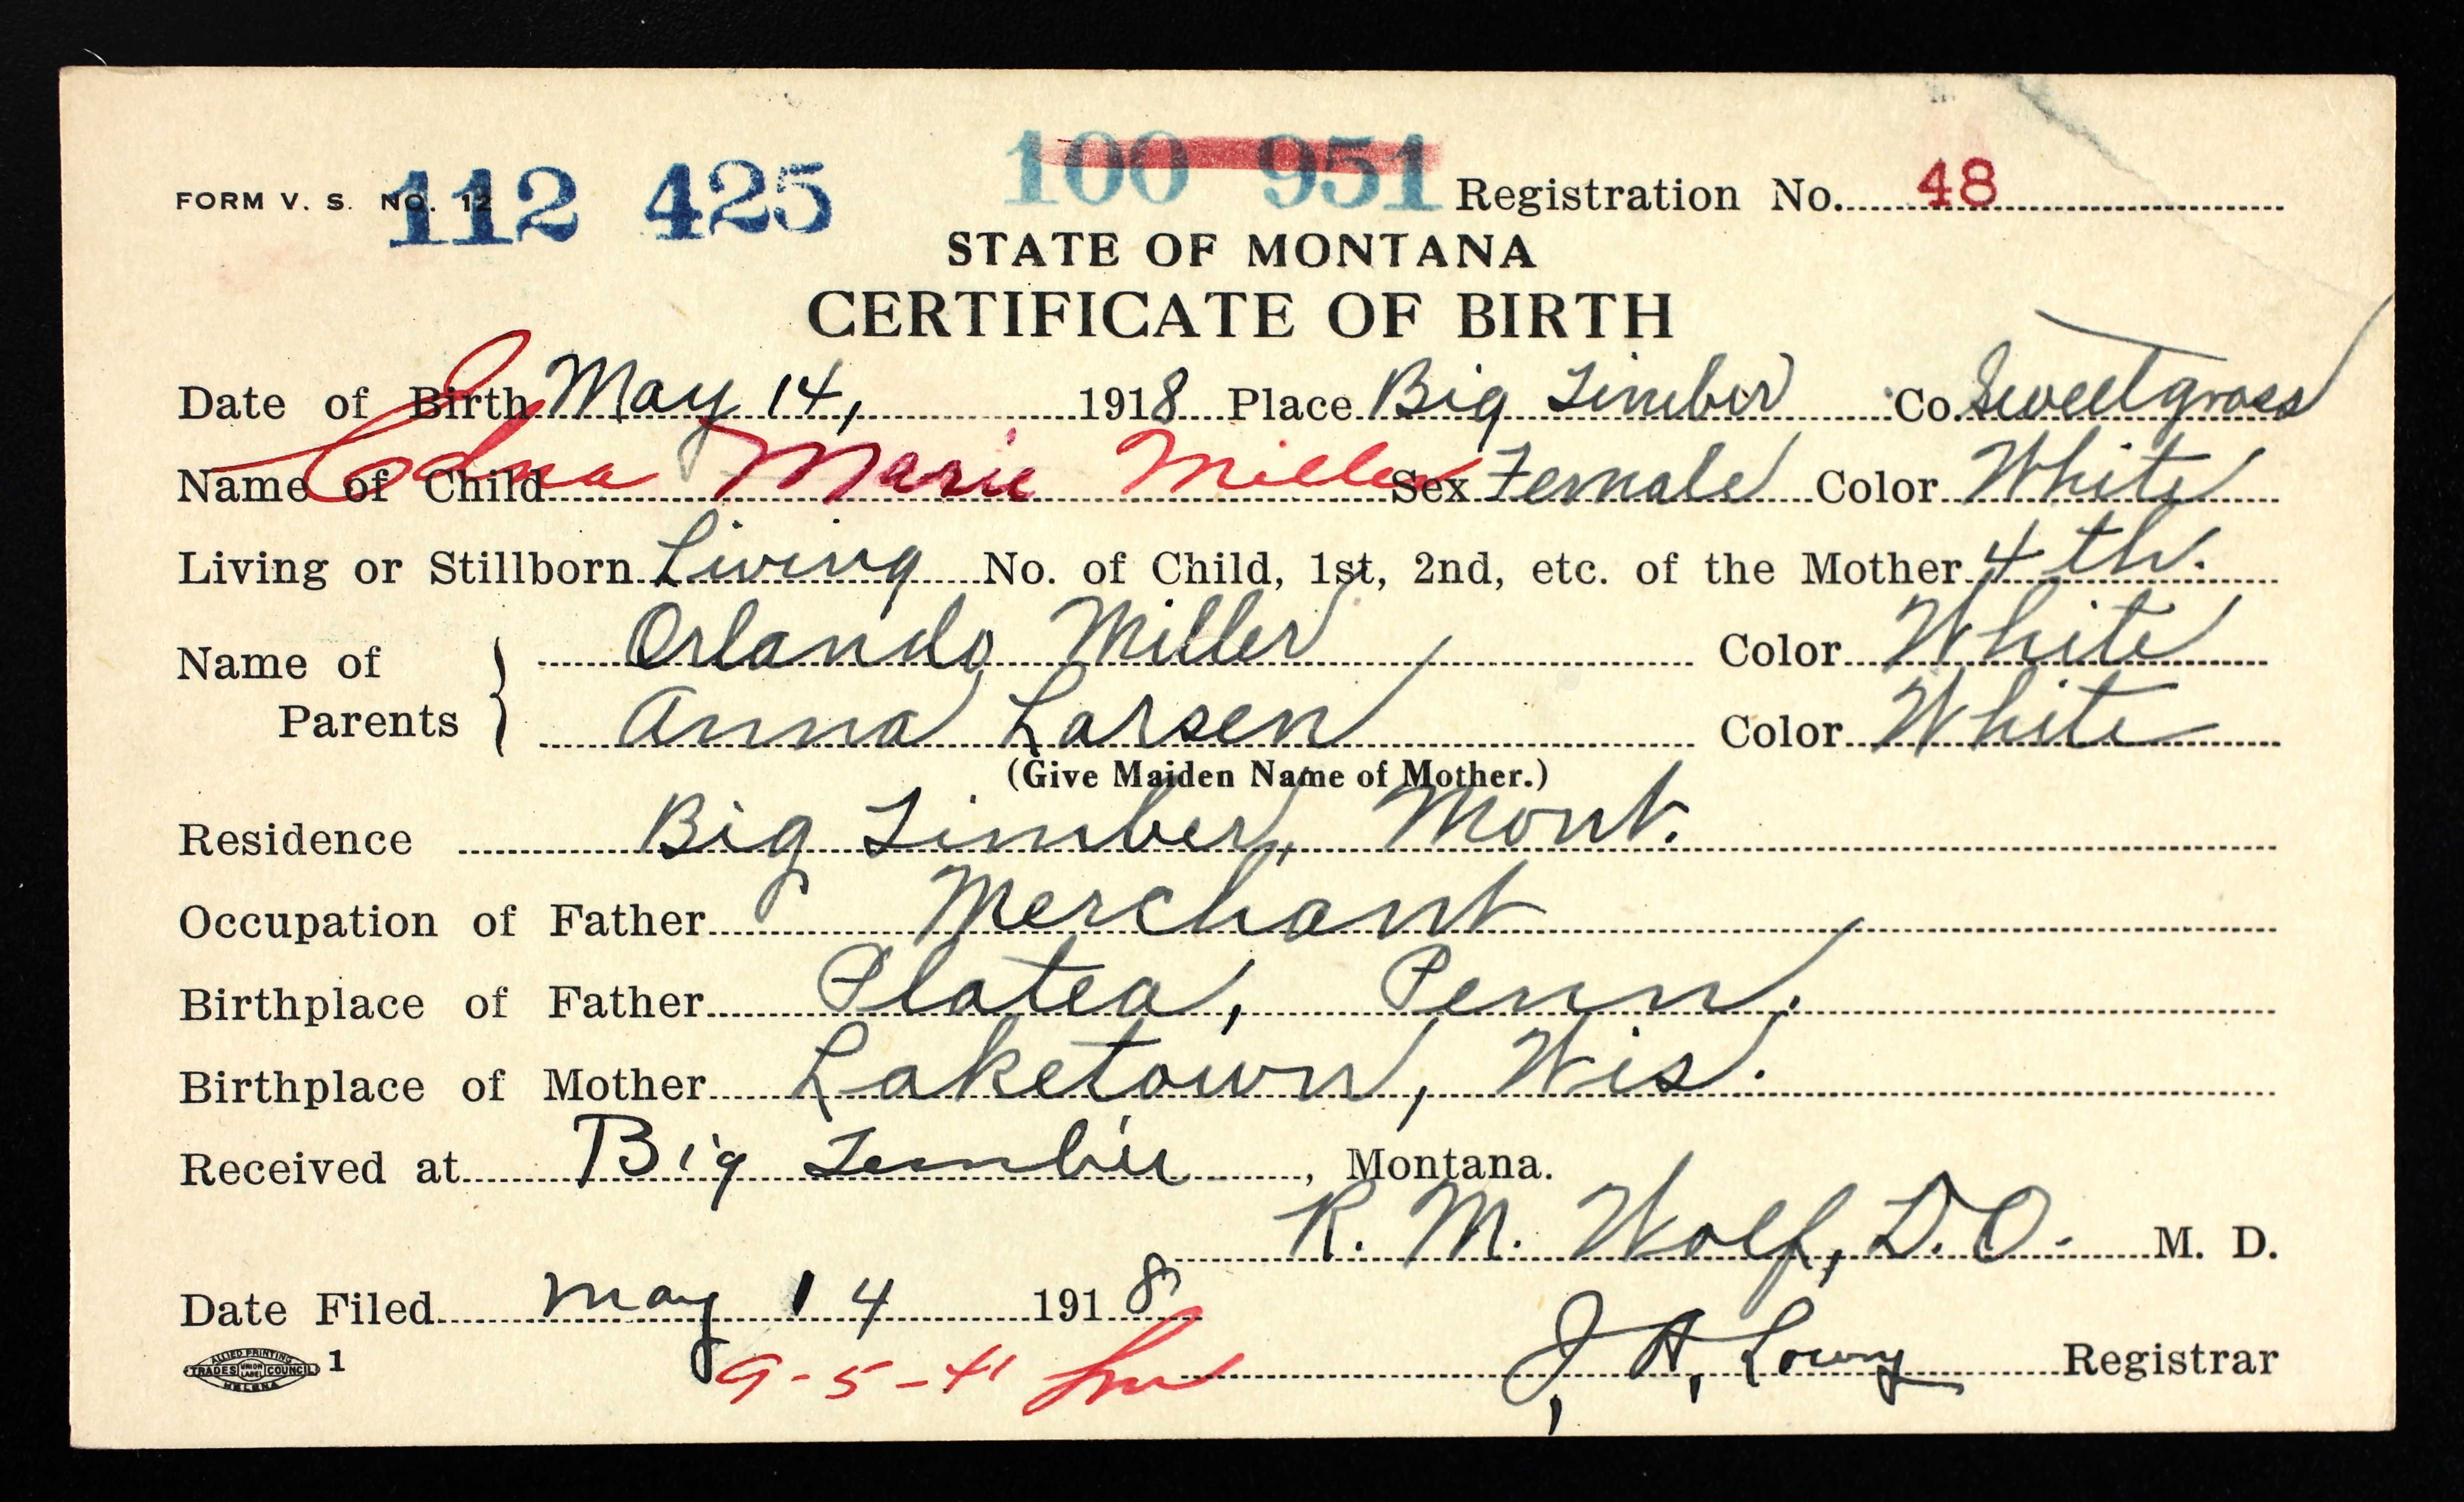 100 951
FORM V. S. NO. 12 112 425 Registration No. 48
STATE OF MONTANA
CERTIFICATE OF BIRTH
Date of Birth May 14, 1918 Place Big Timber Co. Sweetgrass
Name of Child Edna Marie Miller Sex Female Color White
Living or Stillborn Living No. of Child, 1st, 2nd, etc. of the Mother 4th.
Name of Orlando Miller Color White
Parents Anna Larsen Color White
(Give Maiden Name of Mother.)
Residence Big Timber, Mont.
Occupation of Father Merchant
Birthplace of Father Platea, Penn.
Birthplace of Mother Laketown, Wis.
Received at Big Timber, Montana.
R. M. Wolf, D.O. M. D.
Date Filed May 14 1918
9-5-41
J. A. Lowry Registrar
ALLIED PRINTING
TRADES UNION LABEL COUNCIL 1
HELENA